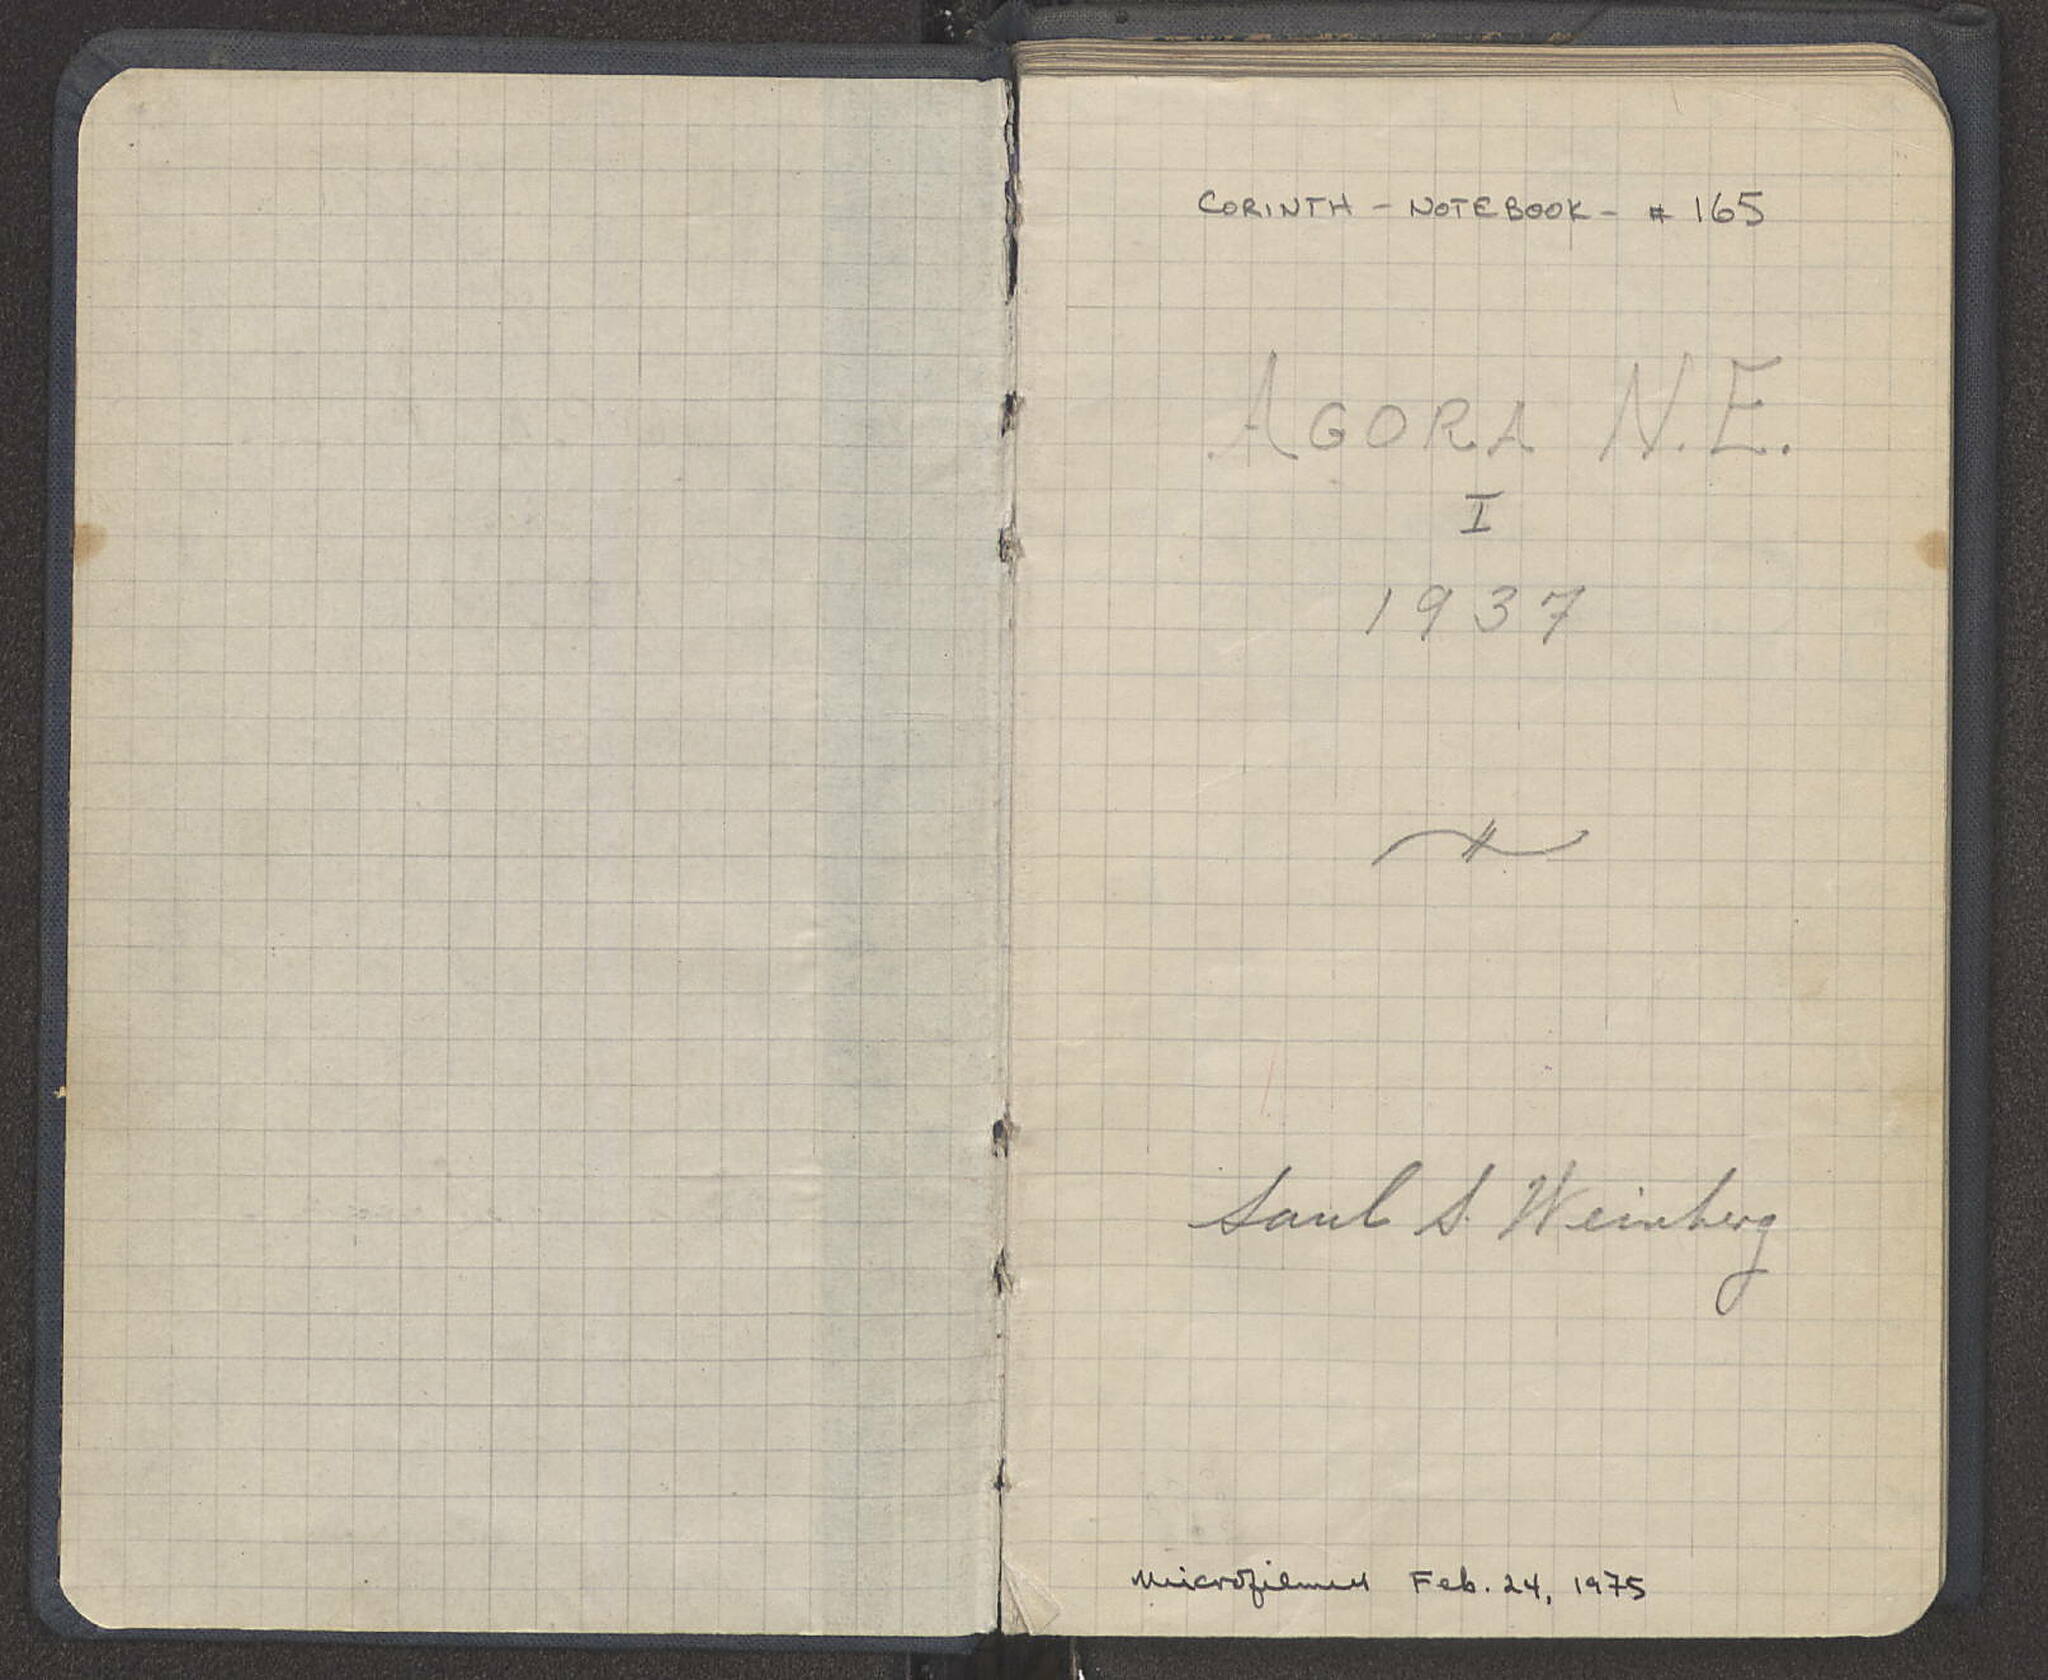 CORINTH - NOTEBOOK - # 165
AGORA N.E.
I
1937
Saul S. Weinberg
Microfilmed Feb. 24, 1975